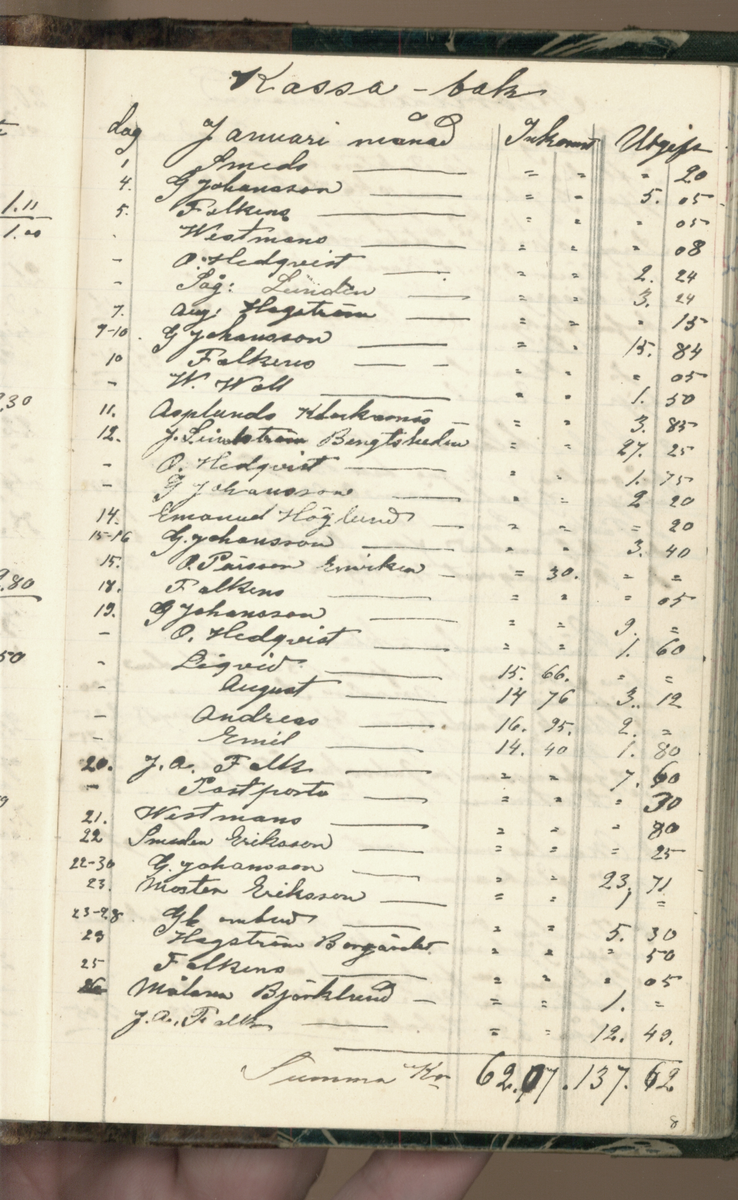 Kassa-bok
dag Januari månad Inkomst Utgift
1 Smeds — " " " 20
4. G Johansson — " " 5. 05
5. Falkens — " " " 05
. Westmans — " " " 08
- O. Hedqvist — " " 2. 24
- Såg: Lundén — " " 3. 24
7. Aug: Hagström — " " " 15
9-10 G Johansson — " " 15. 84
10 Falkens — " " " 05
- W. Wall — " " 1. 50
11. Asplunds — " " 3. 85
12. J. Lindström " " 27. 25
- O. Hedqvist — " " 1. 75
- G Johansson — " " 2 20
14. Emanuel Höglund — " " = 20
15-16 G. Johansson — " " 3. 40
15. O. Persson — = 30. " =
18. Falkens — " " " 05
19. G Johansson — " " 9. =
- O. Hedqvist — " " 1. 60
- Liqvid — 15. 66. " =
- August — 14 76 3. 12
- Andreas — 16. 95. 2. =
- Emil — 14. 40 1. 80
20. J. A. Falk — " " 7. 60
- Postporto — " " " 30
21. Westmans — " " " 80
22 Smeden Eriksson — " " " 25
22-30 G. Johansson — " " 23, 71
23. Morten Eriksson — = " , =
23-28 Gb ombud — " " 5. 30
23 Hagström " " " 50
25 Falkens — " " " 05
26 Målare Björklund — = = 1. =
J. A. Falk — " " 12. 40.
Summa Kr 62.07. 137. 62
8
1.11
1.00
30
80
50